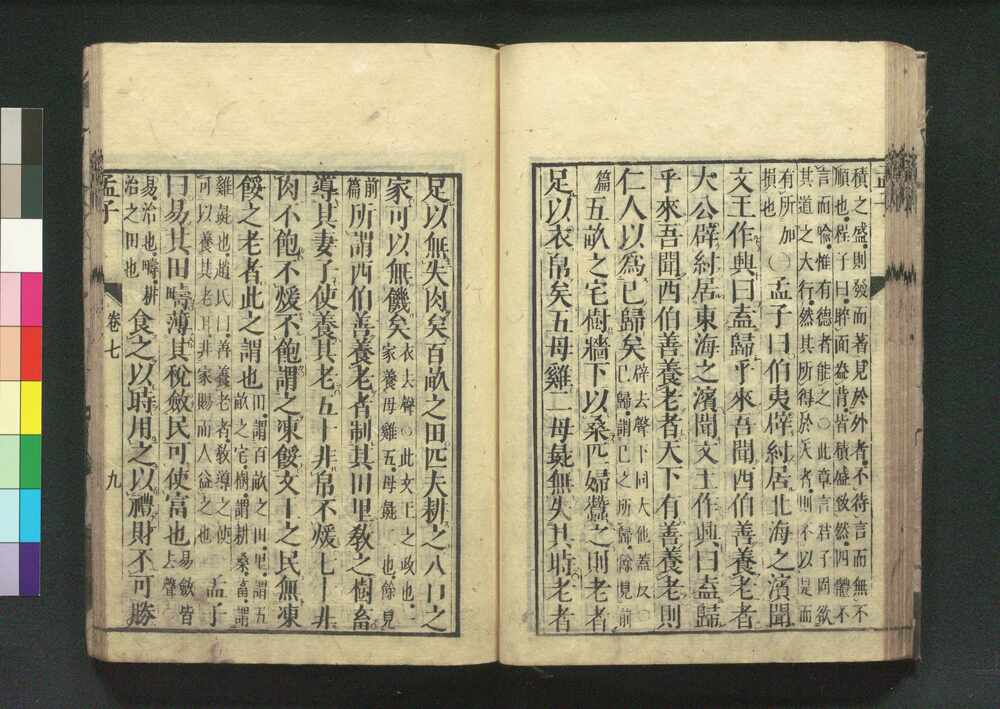 積之盛則發而著見於外者不待言而無不
順也程子曰睟面盎背皆積盛致然四體不
言而喻惟有德者能之○此章言君子固欲
其道之大行然其所得於天者則不以是而
有所加
損也
○孟子曰伯夷辟紂居北海之濱聞
文王作興曰盍歸乎來吾聞西伯善養老者
大公辟紂居東海之濱聞文王作興曰盍歸
乎來吾聞西伯善養老者天下有善養老則
仁人以爲己歸矣
辟去聲下同大他蓋反○
己歸謂己之所歸餘見前
篇
五畝之宅樹牆下以桑匹婦蠶之則老者
足以衣帛矣五母雞二母彘無失其時老者
足以無失肉矣百畝之田匹夫耕之八口之
家可以無饑矣
衣去聲○此文王之政也一
家養母雞五母彘二也餘見
前篇
所謂西伯善養老者制其田里敎之樹畜
導其妻子使養其老五十非帛不煖七十非
肉不飽不煖不飽謂之凍餒文王之民無凍
餒之老者此之謂也
田謂百畝之田里謂五
畝之宅樹謂耕桑畜謂
雞彘也趙氏曰善養老者敎導之使
可以養其老耳非家賜而人益之也
孟子
曰易其田疇薄其稅斂民可使富也
易斂皆
去聲
易治也疇耕
治之田也
食之以時用之以禮財不可勝
孟子 卷七 九